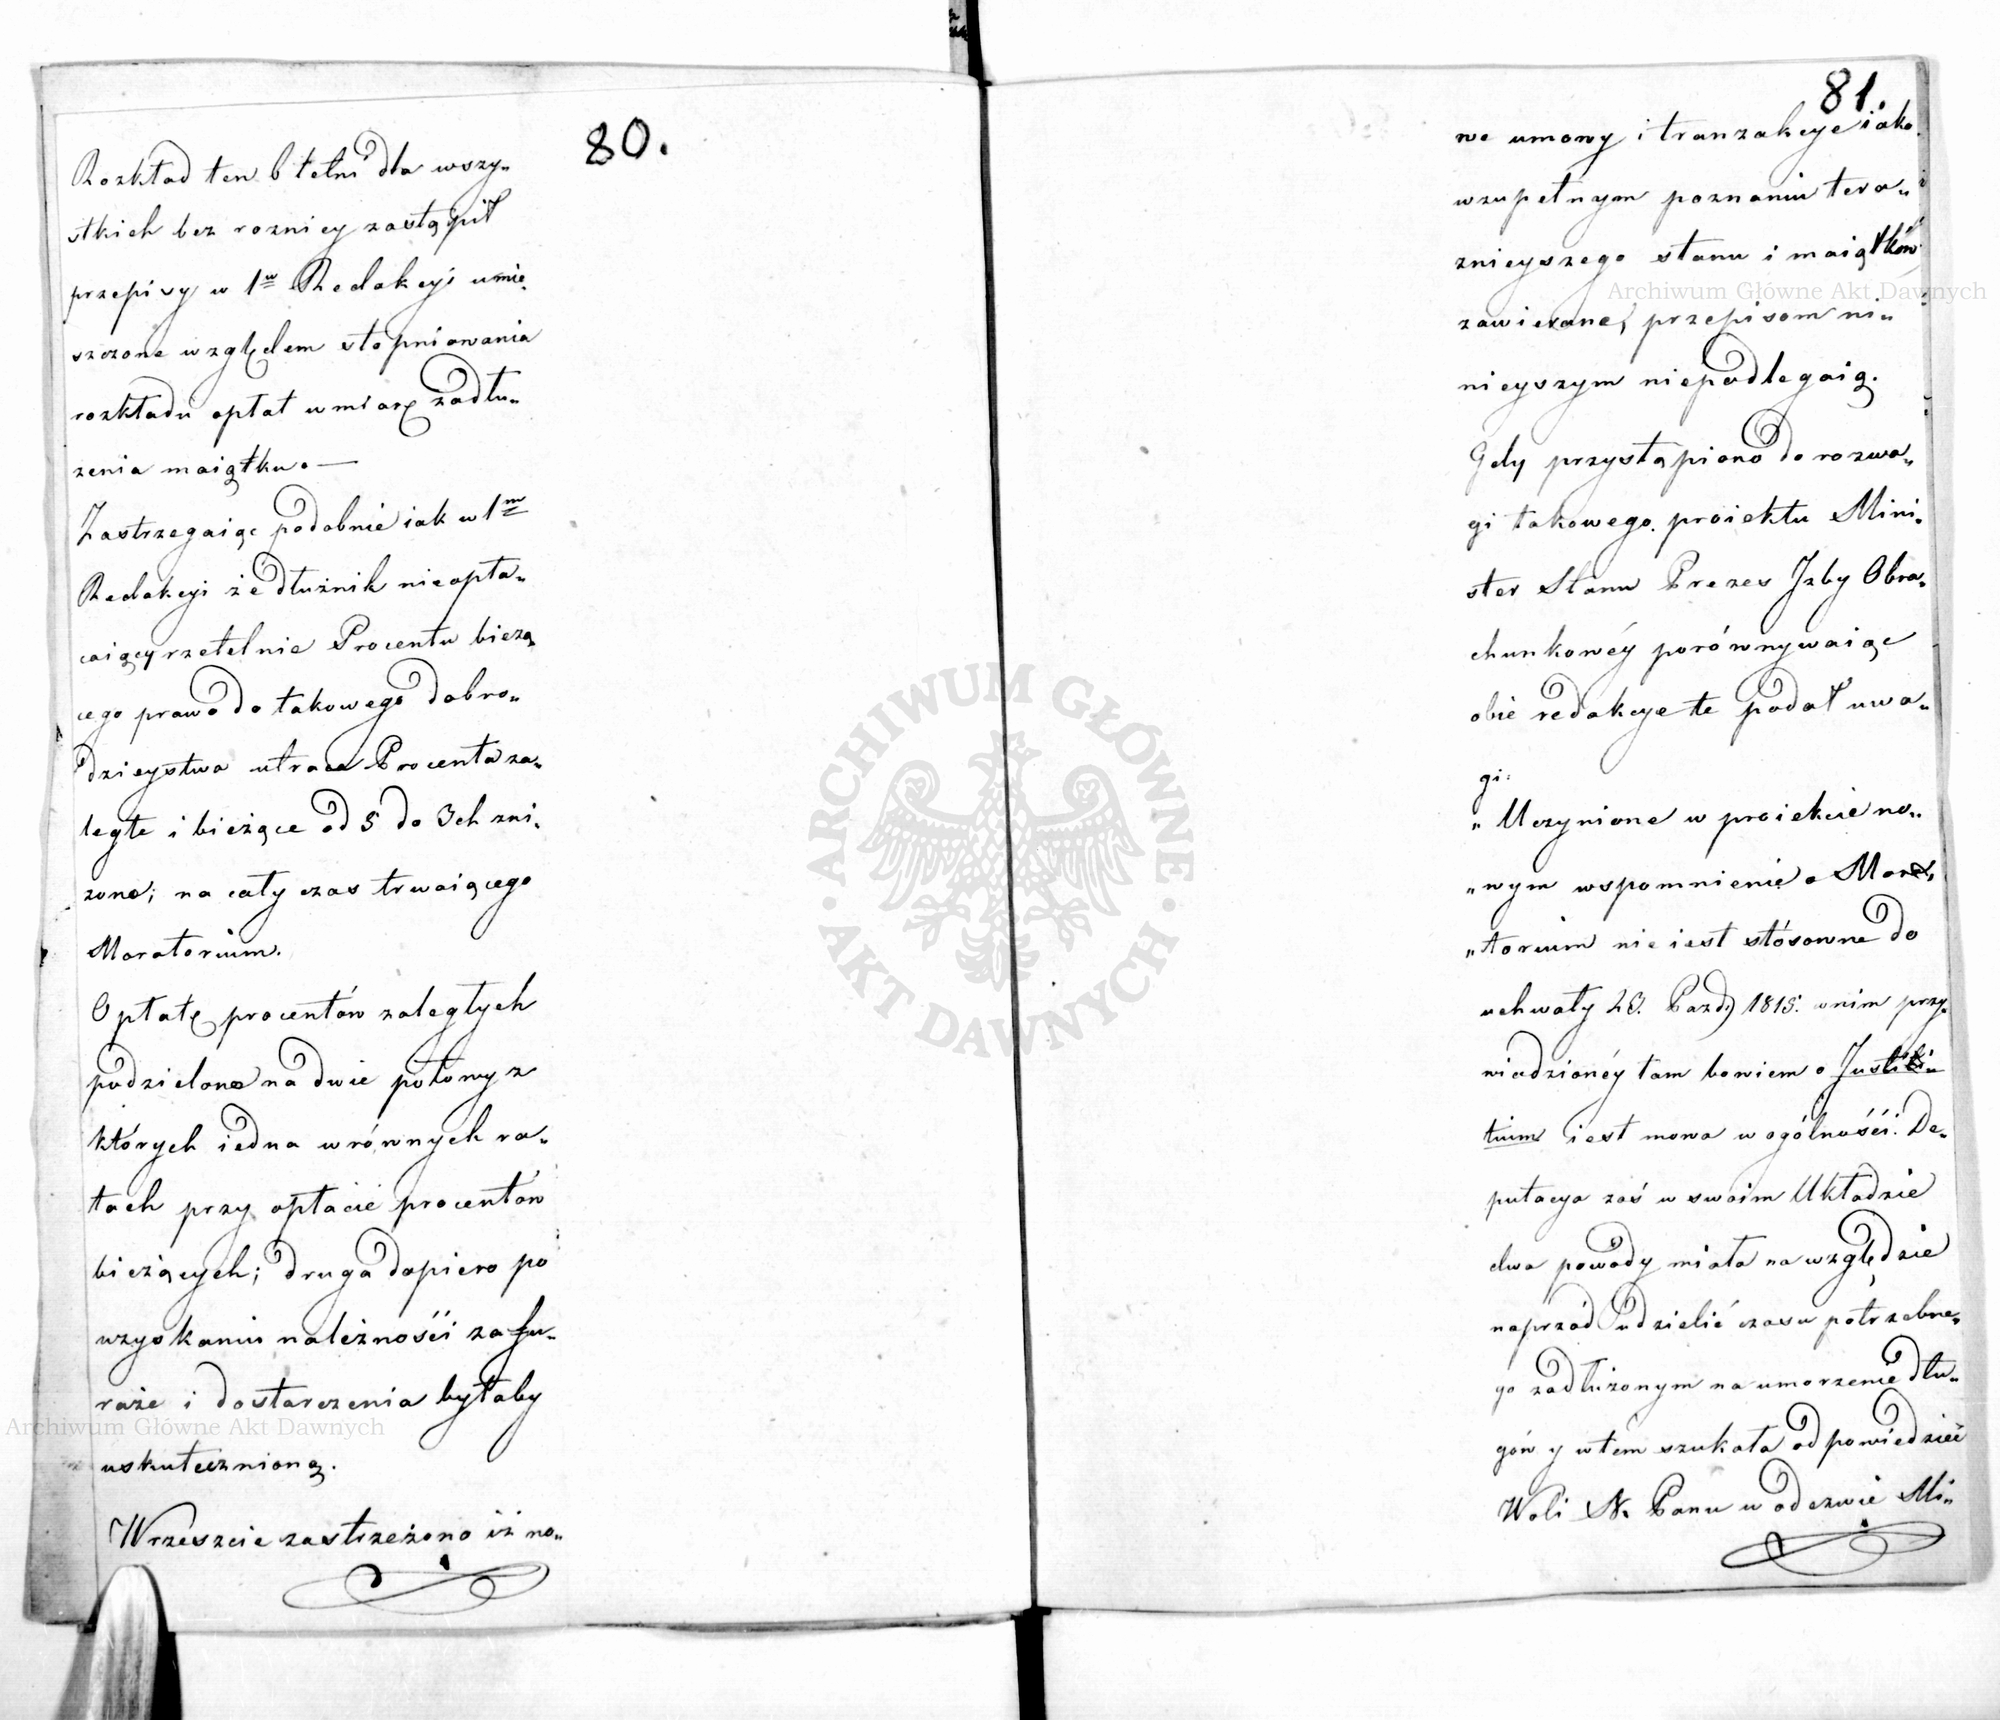 80.
Rozkład ten 6 letni dla wszy„
stkich bez roznicy zastąpił
przepisy w 1w Redakcyi umie„
szczone względem stopniowania
rozkładu opłat w miarę zadłu„
zenia maiątku. —
Zastrzegaiąc podobnie iak w 1m
Redakcyi że dłużnik nieopła„
caiący rzetelnie Procentu bieżą
cego prawo do takowego dobro„
dzieystwa utraca Procenta za„
ległe i bieżące od 5 do 3ch zni„
zono; na cały czas trwaiącego
Moratorium.
Opłatę procentów zaległych
podzielono na dwie połowy z
których iedna w równych ra„
tach przy opłacie procentów
bieżących; druga dopiero po
wzyskaniu należnośći za fu„
raże i dostarczenia byłaby
uskutecznioną.
Wrzeszcie zastrzeżono iż no„
81.
we umowy i tranzakcye iako
wzupełnym poznaniu tera„
znieyszego stanu i maiątków
zawierane, przepisom ni„
nieyszym niepodlegaią.
Gdy przystąpiono do rozwa„
gi takowego proiektu Mini„
ster Stanu Prezes Jzby Obra„
chunkowéy porównywaiąc
obie redakcye te podał uwa„
gi:
„Uczynione w proiekcie no„
„wym wspomnienie o Mora„
„torium nie iest stósowne do
uchwały 23. Pazd) 1815. w nim przy„
wiedzionéy tam bowiem o Justiti„
tium iest mowa w ogólnośći. De„
putacya zaś w swoim Układzie
dwa powody miała na względzie
naprzód udzielić czasu potrzebne„
go zadłużonym na umorzenie dłu„
gów y w tem szukała odpowiedzieć
Woli N. Panu w odezwie Mi„
Archiwum Główne Akt Dawnych
Archiwum Główne Akt Dawnych
ARCHIWUM GŁÓWNE
AKT DAWNYCH